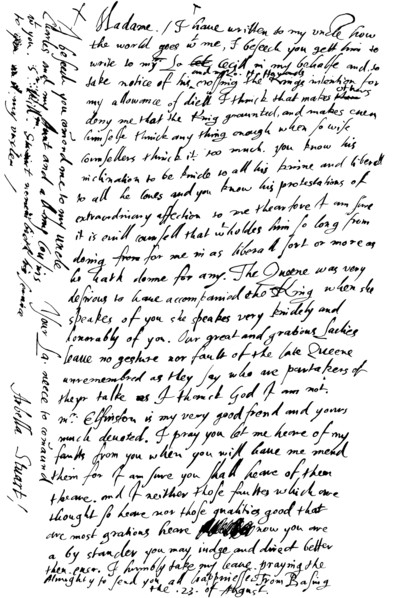 Madame. / I haue written to my uncle how
the world goes wt me, I beseech you gett him to
write to mr Se Cecill in my behalfe and to
take notice of his crossing the Kings intention for
my allowance of diett I thinck that makes others
deny me that the King graunted, and makes euen
himselfe thinck any thing enough when so wise
counsellers thinck it too much. you know his
inclination to be kinde to all his kinne and liberall
to all he loues and you know his protestations of
extraordinary affection to me thearfore I am sure
it is euill counsell that wtholdes him so long from
doing from for me in as liberall sort or more as
he hath donne for any. The Queene was very
desirous to haue accompanied the King when she
speakes of you she speakes very kindely and
honorably of you. Our great and gratious ladies
leaue no gesture nor faulte of the late Queene
unremembred as they say who are partakers of
theyr talke as I thanck God I am not.
mr. Elfinston is my very good frend and yours
much deuoted. I pray you let me heare of my
faults from you when you will haue me mend
them for I am sure you shall heare of them
theare. and if neither those faultes which are
thought so heare nor those qualities good that
are most gratious heare now you are
a by stander you may iudge and direct better
then euer. I humbly take my leaue praying the
Almighty to send you all happinesse. From Basing
the .23. of August.
Your La. neece to comaund
Arbella Stuart /
I beseech you comend me to my uncle
Charles and my Aunt and all my cousins